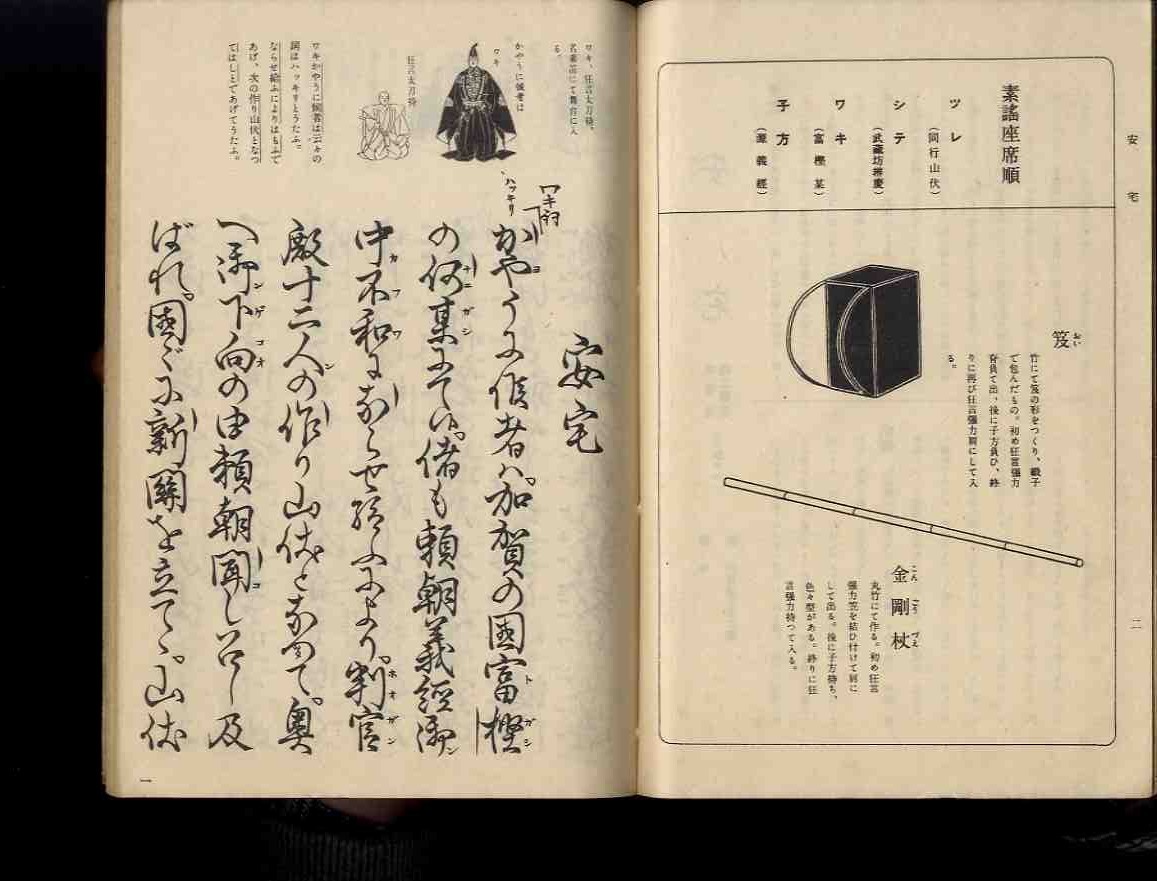 安宅
二
素謠座席順
ツレ
(同行山伏)
シテ
(武藏坊辨慶)
ワキ
(富樫某)
子方
(源義經)
笈
おい
竹にて笈の形をつくり、緞子
で包んだもの。初め狂言强力
脊負て出、後に子方負ひ、終
りに再び狂言强力肩にして入
る。
金剛杖
こん ごう づえ
丸竹にて作る。初め狂言
强力笠を結ひ付けて肩に
して出る。後に子方持ち、
色々型がある。終りに狂
言强力持つて入る。
ワキ、狂言太刀持、
名乘笛にて舞台に入
る。
かやうに候者は
ワキ
狂言太刀持
ワキかやうに候者は云々の
詞はハッキリとうたふ。
ならせ給ふによりはもふて
あげ、次の作り山伏となつ
てはしとであげてうたふ。
ハッキリ
ワキ詞
安宅
かやうに候者ハ。加賀の國富樫
の何某にて候。偖も頼朝義經御
中不和にならせ給ふにより。判官
殿十二人の作り山伏となつて。奥
へ御下向の由頼朝聞し召し及
ばれ。國々に新關を立て。山伏
一